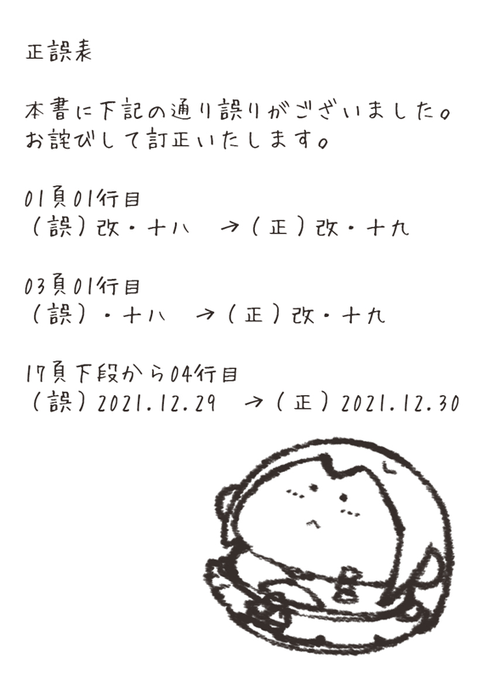 正誤表
本書に下記の通り誤りがございました。
お詫びして訂正いたします。
01頁01行目
(誤)改・十八　→(正)改・十九
03頁01行目
(誤)・十八　→(正)改・十九
17頁下段から04行目
(誤)2021.12.29　→(正)2021.12.30